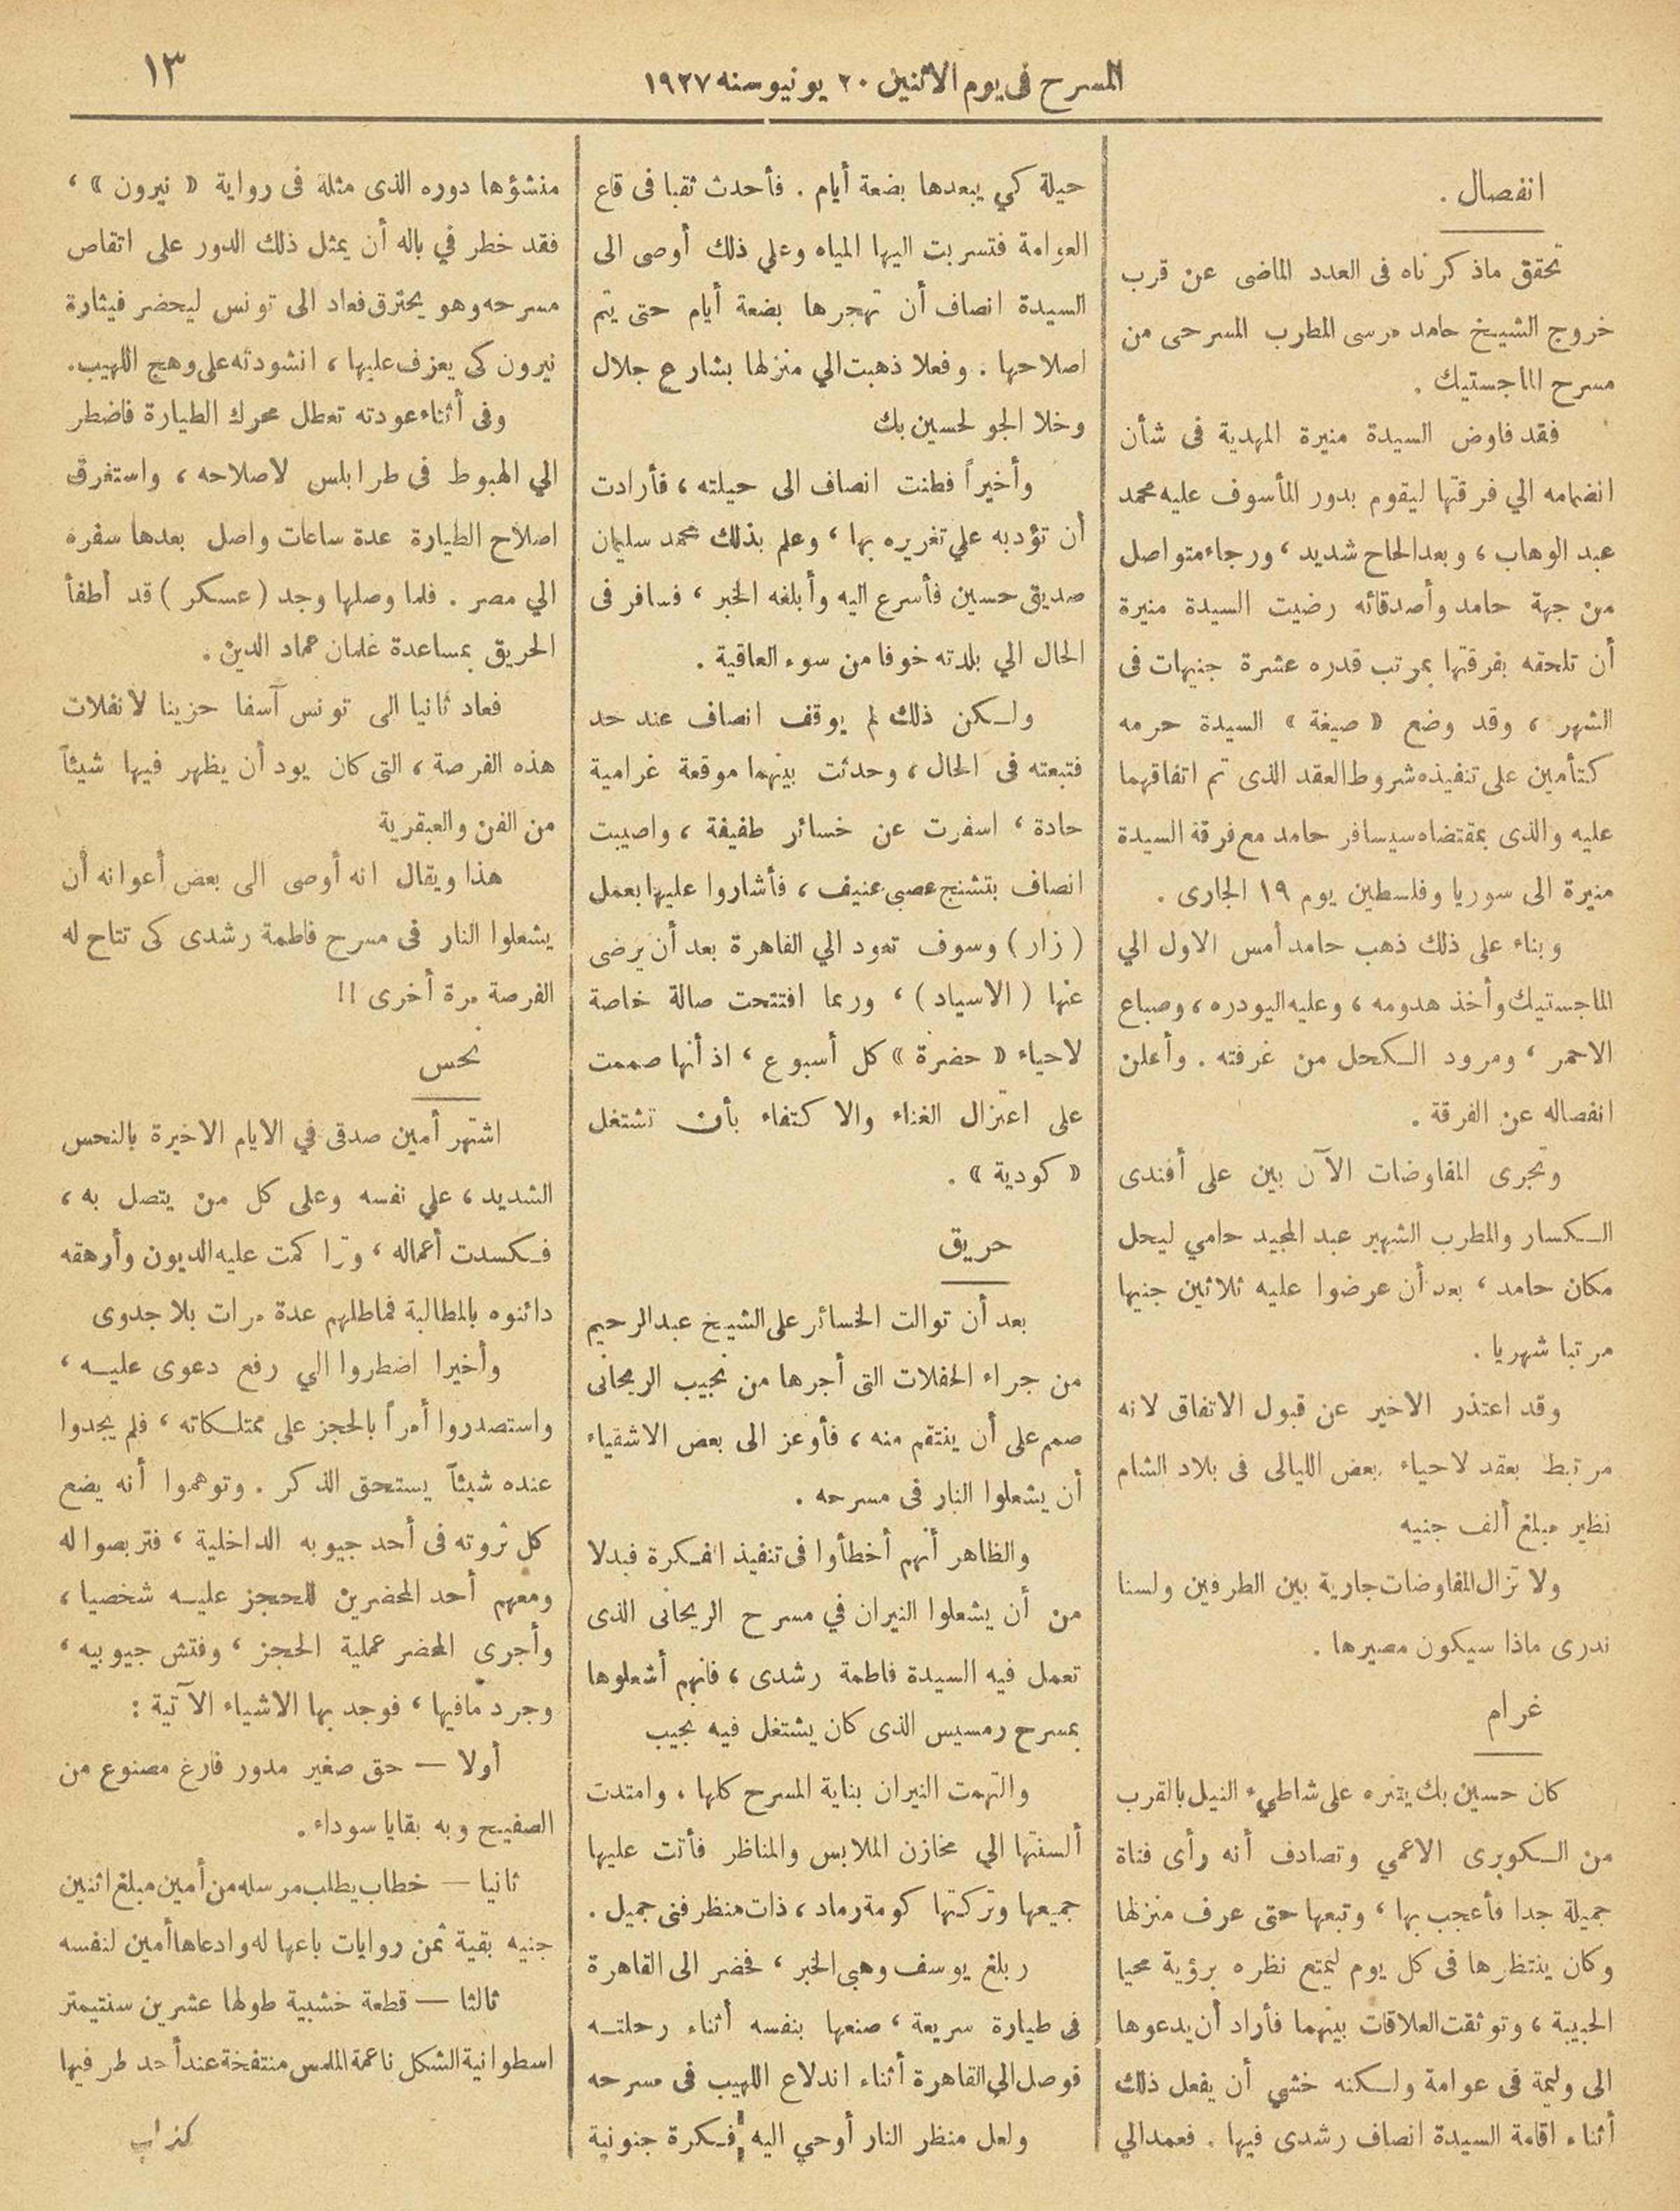 ١٣
المسرح فى يوم الاثنين ٢٠ يونيو سنه ١٩٢٧
انفصال .
تحقق ماذكرناه فى العدد الماضى عن قرب
خروج الشيخ حامد مرسى المطرب المسرحى من
مسرح الماجستيك .
فقد فاوض السيدة منيرة المهدية فى شأن
انضمامه الي فرقتها ليقوم بدور المأسوف عليه محمد
عبد الوهاب ، وبعد الحاح شديد ، ورجاء متواصل
من جهة حامد وأصدقائه رضيت السيدة منيرة
أن تلحقه بفرقتها بمرتب قدره عشرة جنيهات فى
الشهر ، وقد وضع « صيغة » السيدة حرمه
كتأمين على تنفيذه شروط العقد الذى تم اتفاقهما
عليه والذى بمقتضاه سيسافر حامد مع فرقة السيدة
منيرة الى سوريا وفلسطين يوم ١٩ الجارى .
وبناء على ذلك ذهب حامد أمس الاول الي
الماجستيك وأخذ هدومه ، وعلبه اليودره ، وصباع
الاحمر ، ومرود الكحل من غرفته . وأعلن
انفصاله عن الفرقة .
وتجرى المفاوضات الآن بين على أفندى
الكسار والمطرب الشهير عبد المجيد حامي ليحل
مكان حامد ، بعد أن عرضوا عليه ثلاثين جنيها
مرتبا شهريا .
وقد اعتذر الاخير عن قبول الاتفاق لانه
مرتبط بعقد لاحياء بعض الليالى فى بلاد الشام
نظير مبلغ ألف جنيه
ولا تزال المفاوضات جارية بين الطرفين ولسنا
ندرى ماذا سيكون مصيرها .
غرام
كان حسين بك يتنزه على شاطيء النيل بالقرب
من الكوبرى الاعمي وتصادف أنه رأى فتاة
جميلة جدا فأعجب بها ، وتبعها حتى عرف منزلها
وكان ينتظرها فى كل يوم ليمتع نظره برؤية محيا
الحبيبة ، وتوثقت العلاقات بينهما فأراد أن يدعوها
الى وليمة فى عوامة ولكنه خشي أن يفعل ذلك
أثناء اقامة السيدة انصاف رشدى فيها . فعمد الي
حيلة كي يبعدها بضعة أيام . فأحدث ثقبا فى قاع
العوامة فتسربت اليها المياه وعلي ذلك أوصى الى
السيدة انصاف أن تهجرها بضعة أيام حتى يتم
اصلاحها . وفعلا ذهبت الي منزلها بشارع جلال
وخلا الجو لحسين بك
وأخيراً فطنت انصاف الى حيلته ، فأرادت
أن تؤدبه علي تغريره بها ، وعلم بذلك محمد سليمان
صديق حسين فأسرع اليه وأبلغه الخبر ، فسافر فى
الحال الي بلدته خوفا من سوء العاقبة .
ولكن ذلك لم يوقف انصاف عند حد
فتبعته فى الحال ، وحدثت بينهما موقعة غرامية
حادة ، اسفرت عن خسائر طفيفة ، واصيبت
انصاف بتشنج عصبى عنيف ، فأشاروا عليها بعمل
( زار ) وسوف تعود الي القاهرة بعد أن يرضى
عنها ( الاسياد ) ، وربما افتتحت صالة خاصة
لاحياء « حضرة » كل أسبوع ، اذ أنها صممت
على اعتزال الغناء والاكتفاء بأن تشتغل
« كودية » .
حريق
بعد أن توالت الخسائر على الشيخ عبد الرحيم
من جراء الحفلات التى أجرها من نجيب الريحانى
صمم على أن ينتقم منه ، فأوعز الى بعض الاشقياء
أن يشعلوا النار فى مسرحه .
والظاهر أنهم أخطأوا فى تنفيذ الفكرة فبدلا
من أن يشعلوا النيران في مسرح الريحانى الذى
تعمل فيه السيدة فاطمة رشدى ، فانهم أشعلوها
بمسرح رمسيس الذى كان يشتغل فيه نجيب
والتهمت النيران بناية المسرح كلها ، وامتدت
ألسنتها الي مخازن الملابس والمناظر فأتت عليها
جميعها وتركتها كومة رماد ، ذات منظر فنى جميل .
وبلغ يوسف وهبي الخبر ، فحضر الى القاهرة
فى طيارة سريعة ، صنعها بنفسه أثناء رحلته
فوصل الي القاهرة أثناء اندلاع اللهيب فى مسرحه
ولعل منظر النار أوحي اليه فكرة جنونية
منشؤها دوره الذى مثله فى رواية « نيرون » ،
فقد خطر في باله أن يمثل ذلك الدور على انقاض
مسرحه وهو يحترق فعاد الى تونس ليحضر قيثارة
نيرون كى يعزف عليها ، انشودته على وهج اللهيب .
وفى أثناء عودته تعطل محرك الطيارة فاضطر
الي الهبوط فى طرابلس لاصلاحه ، واستغرق
اصلاح الطيارة عدة ساعات واصل بعدها سفره
الي مصر . فلما وصلها وجد ( عسكر ) قد أطفأ
الحريق بمساعدة غلمان عماد الدين .
فعاد ثانيا الى تونس آسفا حزينا لانفلات
هذه الفرصة ، التى كان يود أن يظهر فيها شيئاً
من الفن والعبقرية
هذا ويقال انه أوصى الى بعض أعوانه أن
يشعلوا النار فى مسرح فاطمة رشدى كى تتاح له
الفرصة مرة أخرى !!
نحس
اشتهر أمين صدقى في الايام الاخيرة بالنحس
الشديد ، علي نفسه وعلى كل من يتصل به ،
فكسدت أعماله ، وتراكمت عليه الديون وأرهقه
دائنوه بالمطالبة فماطلهم عدة مرات بلا جدوى
وأخيرا اضطروا الي رفع دعوى عليه ،
واستصدروا أمراً بالحجز على ممتلكاته ، فلم يجدوا
عنده شيئاً يستحق الذكر . وتوهموا أنه يضع
كل ثروته فى أحد جيوبه الداخلية ، فتربصوا له
ومعهم أحد المحضرين للحجز عليه شخصيا ،
وأجرى المحضر عملية الحجز ، وفتش جيوبيه ،
وجرد مافيها ، فوجد بها الاشياء الآتية :
أولا — حق صغير مدور فارغ مصنوع من
الصفيح وبه بقايا سوداء .
ثانيا — خطاب يطلب مرسله من أمين مبلغ اثنين
جنيه بقية ثمن روايات باعها له وادعاها أمين لنفسه
ثالثا — قطعة خشبية طولها عشرين سنتيمتر
اسطوانية الشكل ناعمة الملمس منتفخة عند أحد طرفيها
كذاب